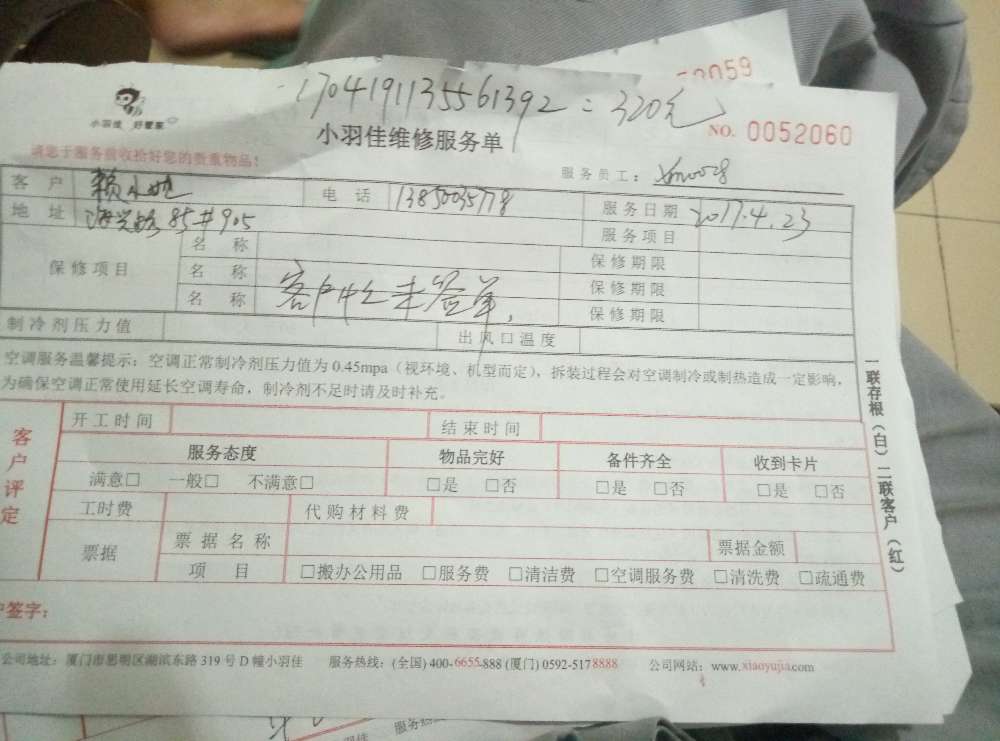 0059
17041911355613​92 = 320元
小羽佳 好管家
小羽佳维修服务单
NO. 0052060
请您于服务前收拾好您的贵重物品!
服务员工: xm0028
客户 电话 13850035778 服务日期 2017.4.23
地址 海兴路85#905 服务项目
保修项目 名称 保修期限
名称 客户忙未签单, 保修期限
名称 保修期限
制冷剂压力值 出风口温度
空调服务温馨提示:空调正常制冷剂压力值为0.45mpa(视环境、机型而定),拆装过程会对空调制冷或制热造成一定影响,
为确保空调正常使用延长空调寿命,制冷剂不足时请及时补充。
客户评定
开工时间 结束时间
服务态度 物品完好 备件齐全 收到卡片
满意□ 一般□ 不满意□ □是 □否 □是 □否 □是 □否
工时费 代购材料费
票据 票据名称 票据金额
项目 □搬办公用品 □服务费 □清洁费 □空调服务费 □清洗费 □疏通费
户签字:
一联存根(白)二联客户(红)
公司地址:厦门市思明区湖滨东路319号D幢小羽佳 服务热线:(全国)400-6655-888 (厦门) 0592-5178888 公司网站:www.xiaoyujia.com